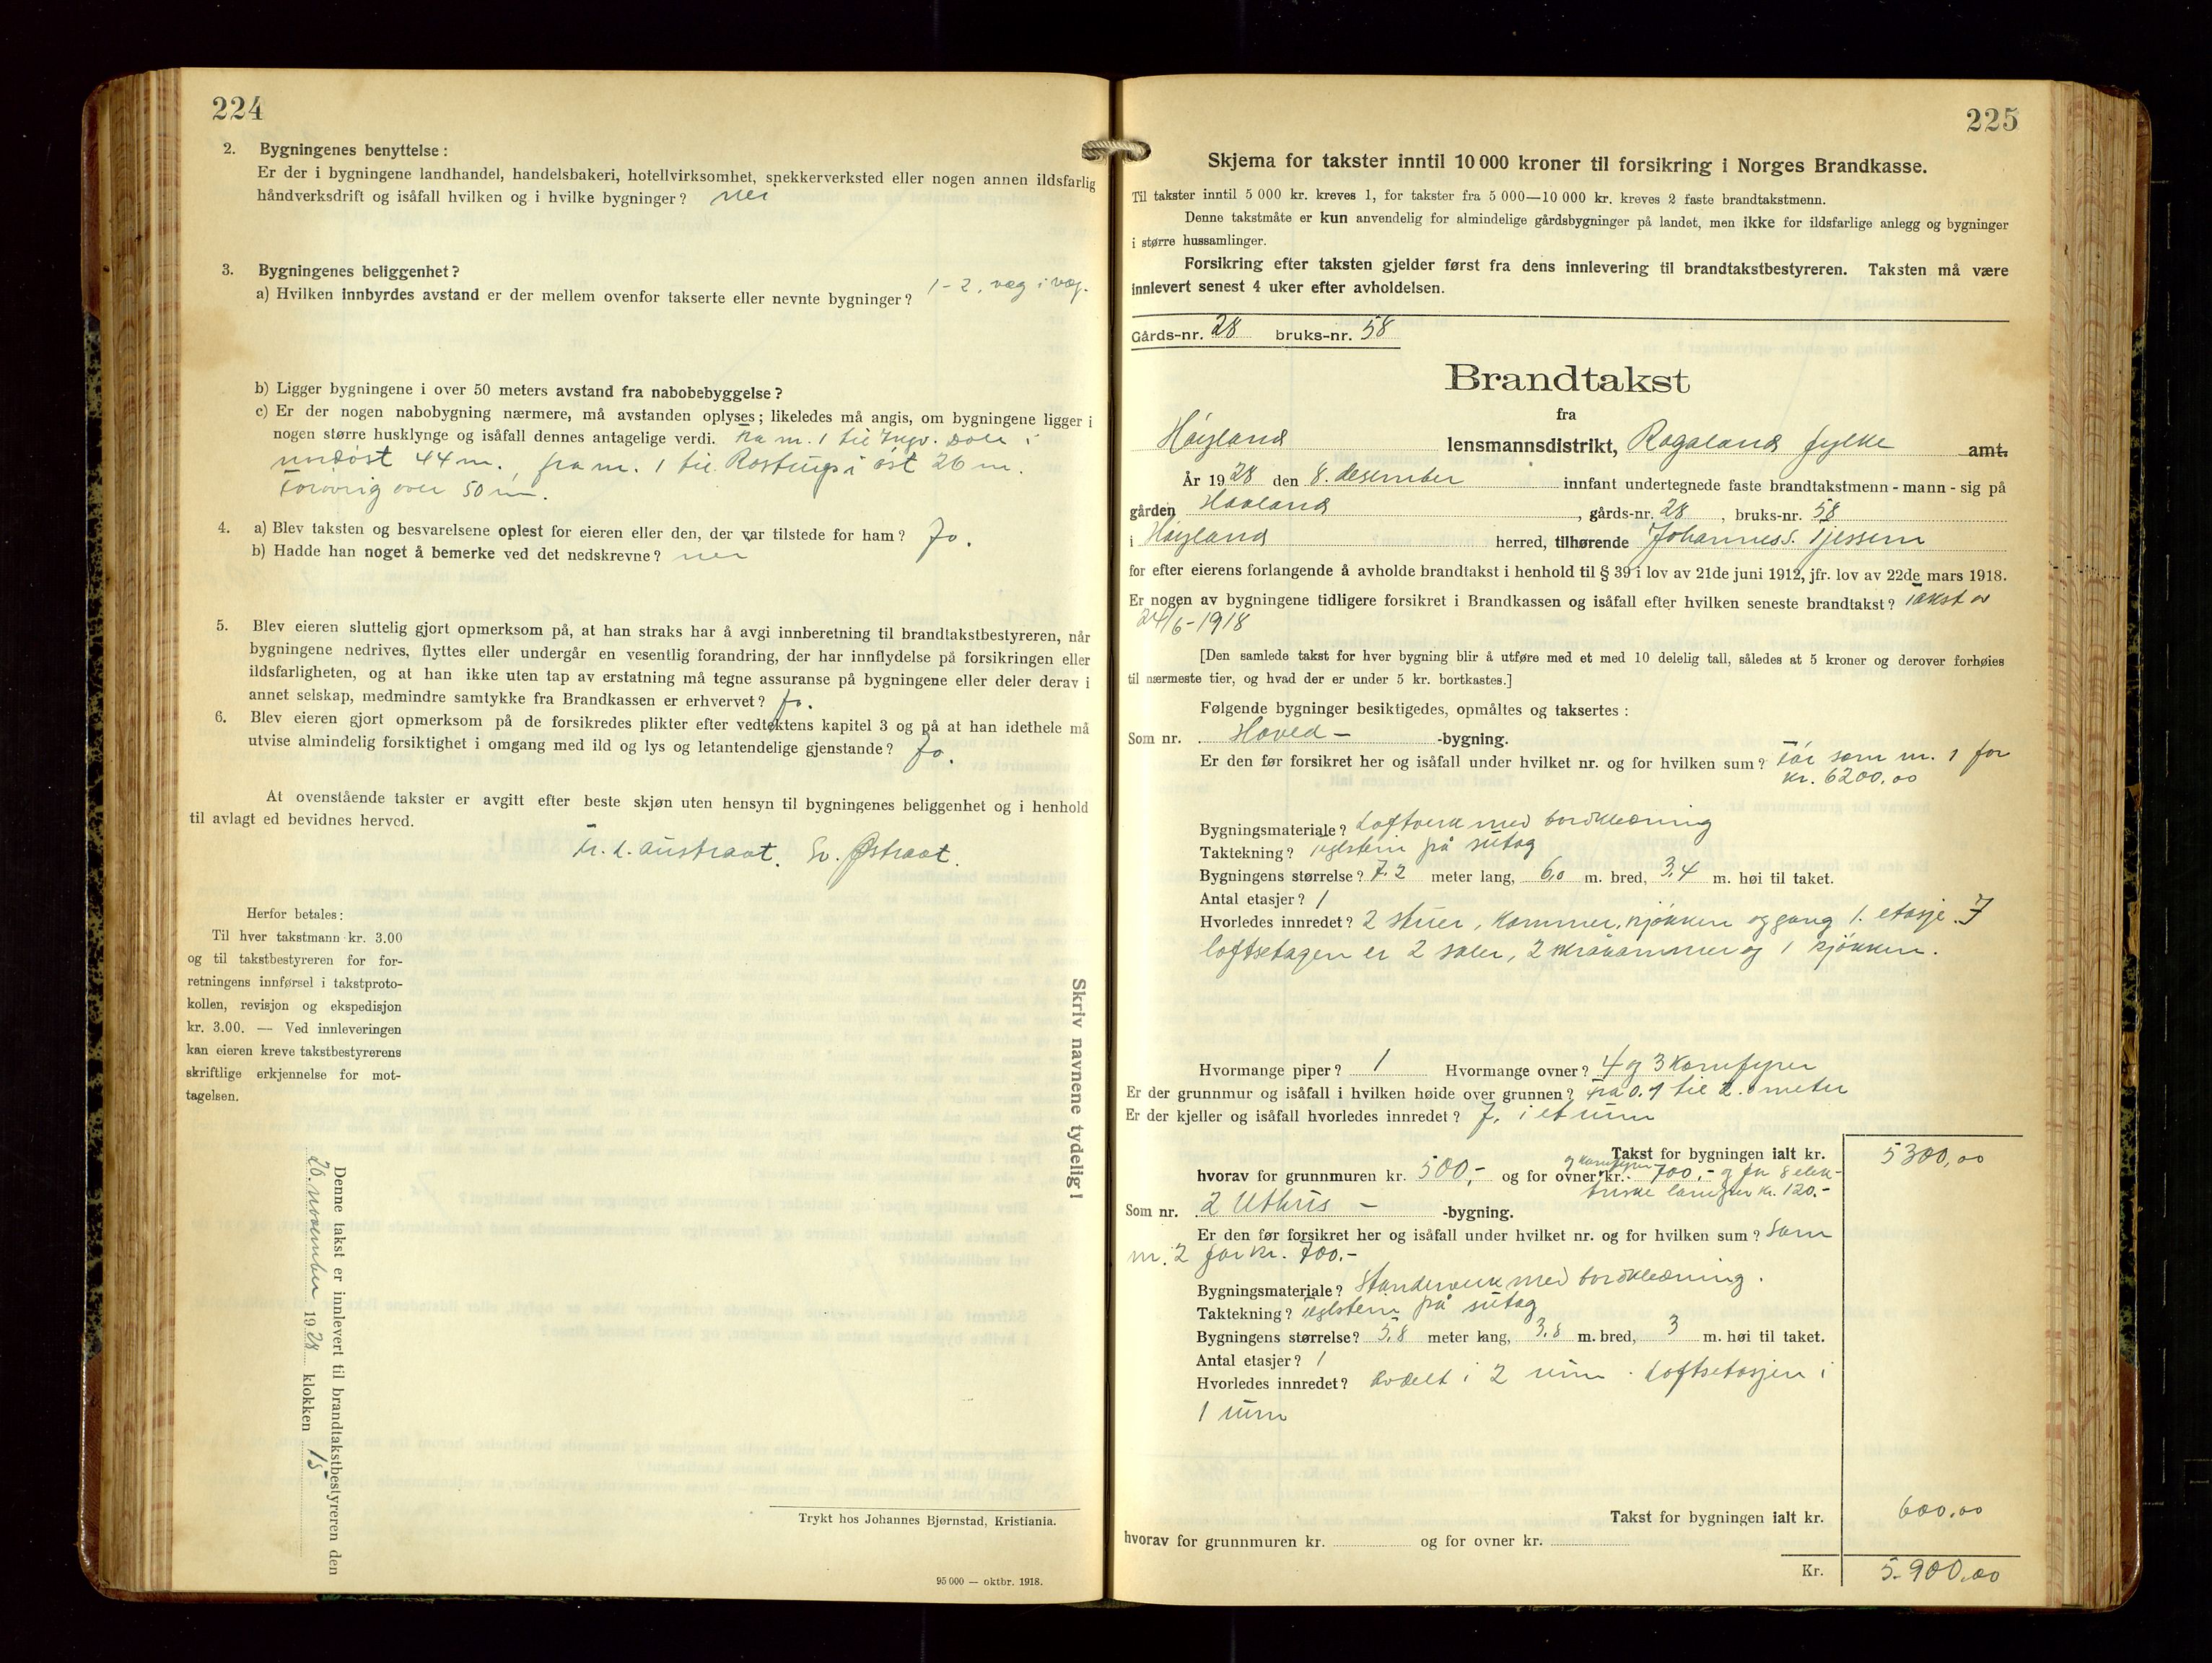 224
2. Bygningenes benyttelse :
Er der i bygningene landhandel, handelsbakeri, hotellvirksomhet, snekkerverksted eller nogen annen ildsfarlig
håndverksdrift og isåfall hvilken og i hvilke bygninger? nei
3. Bygningenes beliggenhet?
a) Hvilken innbyrdes avstand er der mellem ovenfor takserte eller nevnte bygninger? 1-2, veg i veg.
b) Ligger bygningene i over 50 meters avstand fra nabobebyggelse?
c) Er der nogen nabobygning nærmere, må avstanden oplyses; likeledes må angis, om bygningene ligger i
nogen større husklynge og isåfall dennes antagelige verdi. Fra nr. 1 til Ingv. i
nordöst 44 m., fra nr. 1 til Rostrups i öst 26 m.
Forövrig over 50 m.
4. a) Blev taksten og besvarelsene oplest for eieren eller den, der var tilstede for ham? Jo.
b) Hadde han noget å bemerke ved det nedskrevne? nei
5. Blev eieren sluttelig gjort opmerksom på, at han straks har å avgi innberetning til brandtakstbestyreren, når
bygningene nedrives, flyttes eller undergår en vesentlig forandring, der har innflydelse på forsikringen eller
ildsfarligheten, og at han ikke uten tap av erstatning må tegne assuranse på bygningene eller deler derav i
annet selskap, medmindre samtykke fra Brandkassen er erhvervet? Jo.
6. Blev eieren gjort opmerksom på de forsikredes plikter efter vedtektens kapitel 3 og på at han idethele må
utvise almindelig forsiktighet i omgang med ild og lys og letantendelige gjenstande? Jo.
At ovenstående takster er avgitt efter beste skjøn uten hensyn til bygningenes beliggenhet og i henhold
til avlagt ed bevidnes herved.
Tr. L. Austraat. Sv. Østraat.
Herfor betales:
Til hver takstmann kr. 3.00
og til takstbestyreren for for-
retningens innførsel i takstproto-
kollen, revisjon og ekspedisjon
kr. 3.00. — Ved innleveringen
kan eieren kreve takstbestyrerens
skriftlige erkjennelse for mot-
tagelsen.
Skriv navnene tydelig!
Denne takst er innlevert til brandtakstbestyreren den
20. november 1928 klokken 15
Trykt hos Johannes Bjørnstad, Kristiania.
95 000 — oktbr. 1918.
225
Skjema for takster inntil 10 000 kroner til forsikring i Norges Brandkasse.
Til takster inntil 5 000 kr. kreves 1, for takster fra 5 000—10 000 kr. kreves 2 faste brandtakstmenn.
Denne takstmåte er kun anvendelig for almindelige gårdsbygninger på landet, men ikke for ildsfarlige anlegg og bygninger
i større hussamlinger.
Forsikring efter taksten gjelder først fra dens innlevering til brandtakstbestyreren. Taksten må være
innlevert senest 4 uker efter avholdelsen.
Gårds-nr. 28 bruks-nr. 58
Brandtakst
fra
Höyland lensmannsdistrikt, Rogaland fylke amt.
År 1928 den 8. desember innfant undertegnede faste brandtakstmenn - mann - sig på
gården Havland, gårds-nr. 28, bruks-nr. 58
i Höyland herred, tilhørende Johannes S. Tjessem
for efter eierens forlangende å avholde brandtakst i henhold til § 39 i lov av 21de juni 1912, jfr. lov av 22de mars 1918.
Er nogen av bygningene tidligere forsikret i Brandkassen og isåfall efter hvilken seneste brandtakst? Takst av
24/6-1918
[Den samlede takst for hver bygning blir å utføre med et med 10 delelig tall, således at 5 kroner og derover forhøies
til nærmeste tier, og hvad der er under 5 kr. bortkastes.]
Følgende bygninger besiktigedes, opmåltes og taksertes :
Som nr. Hoved- -bygning.
Er den før forsikret her og isåfall under hvilket nr. og for hvilken sum? För som nr. 1 for
kr. 6200,00
Bygningsmateriale? Loftverk med bordklædning
Taktekning? Teglstein på sutag
Bygningens størrelse? 7.2 meter lang, 6,0 m. bred, 3,4 m. høi til taket.
Antal etasjer? 1
Hvorledes innredet? 2 stuer, kammer, kjökken og gang 1. etasje. I
loftsetagen er 2 saler, 2 skråkammer og 1 kjökken.
Hvormange piper? 1 Hvormange ovner? 4 og 3 komfyrer
Er der grunnmur og isåfall i hvilken høide over grunnen? Fra 0.4 til 2.0 meter
Er der kjeller og isåfall hvorledes innredet? J. i et rum
Takst for bygningen ialt kr. 5300,00
hvorav for grunnmuren kr. 500,- og for ovner og komfyrer kr. 700,- og for 8 elek-
triske kr. 120.-
Som nr. 2 Uthus - -bygning.
Er den før forsikret her og isåfall under hvilket nr. og for hvilken sum? Som
nr. 2 for kr. 700.-
Bygningsmateriale? Standerverk med bordklædning.
Taktekning? Teglstein på sutag
Bygningens størrelse? 5,8 meter lang, 3,8 m. bred, 3 m. høi til taket.
Antal etasjer? 1
Hvorledes innredet? Avdelt i 2 rum. Loftsetasjen i
1 rum
Takst for bygningen ialt kr. 600,00
hvorav for grunnmuren kr. og for ovner kr.
Kr. 5.900,00